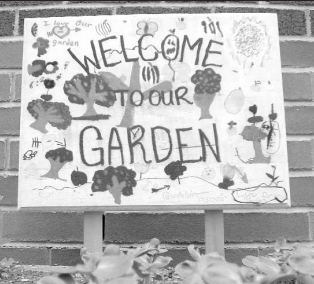 I love Our
garden
WELCOME
TO OUR
GARDEN